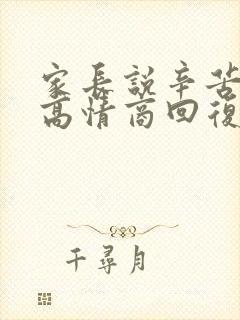 家长説辛苦
高情商回復
千尋月